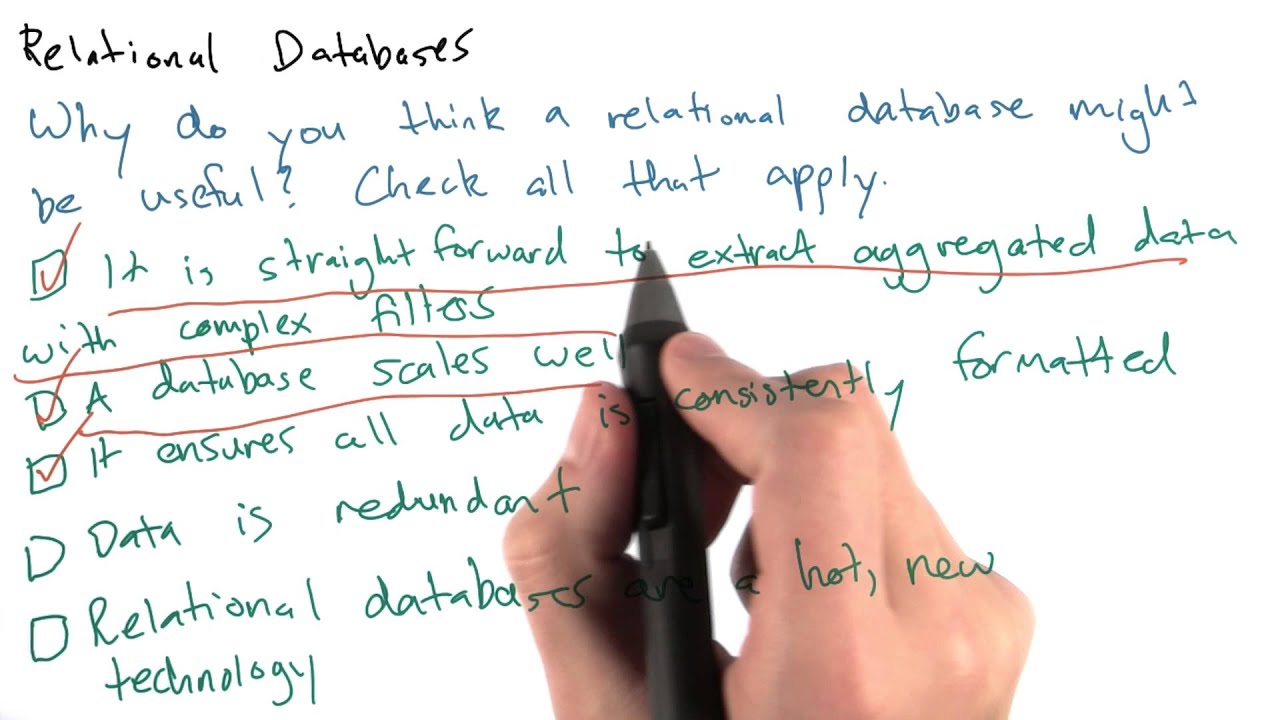 Relational Databases
Why do you think a relational database might
be useful? Check all that apply.
It is straight forward to extract aggregated data
with complex filters
A database scales well
It ensures all data is consistently formatted
Data is redundant
Relational databases are a hot, new
technology